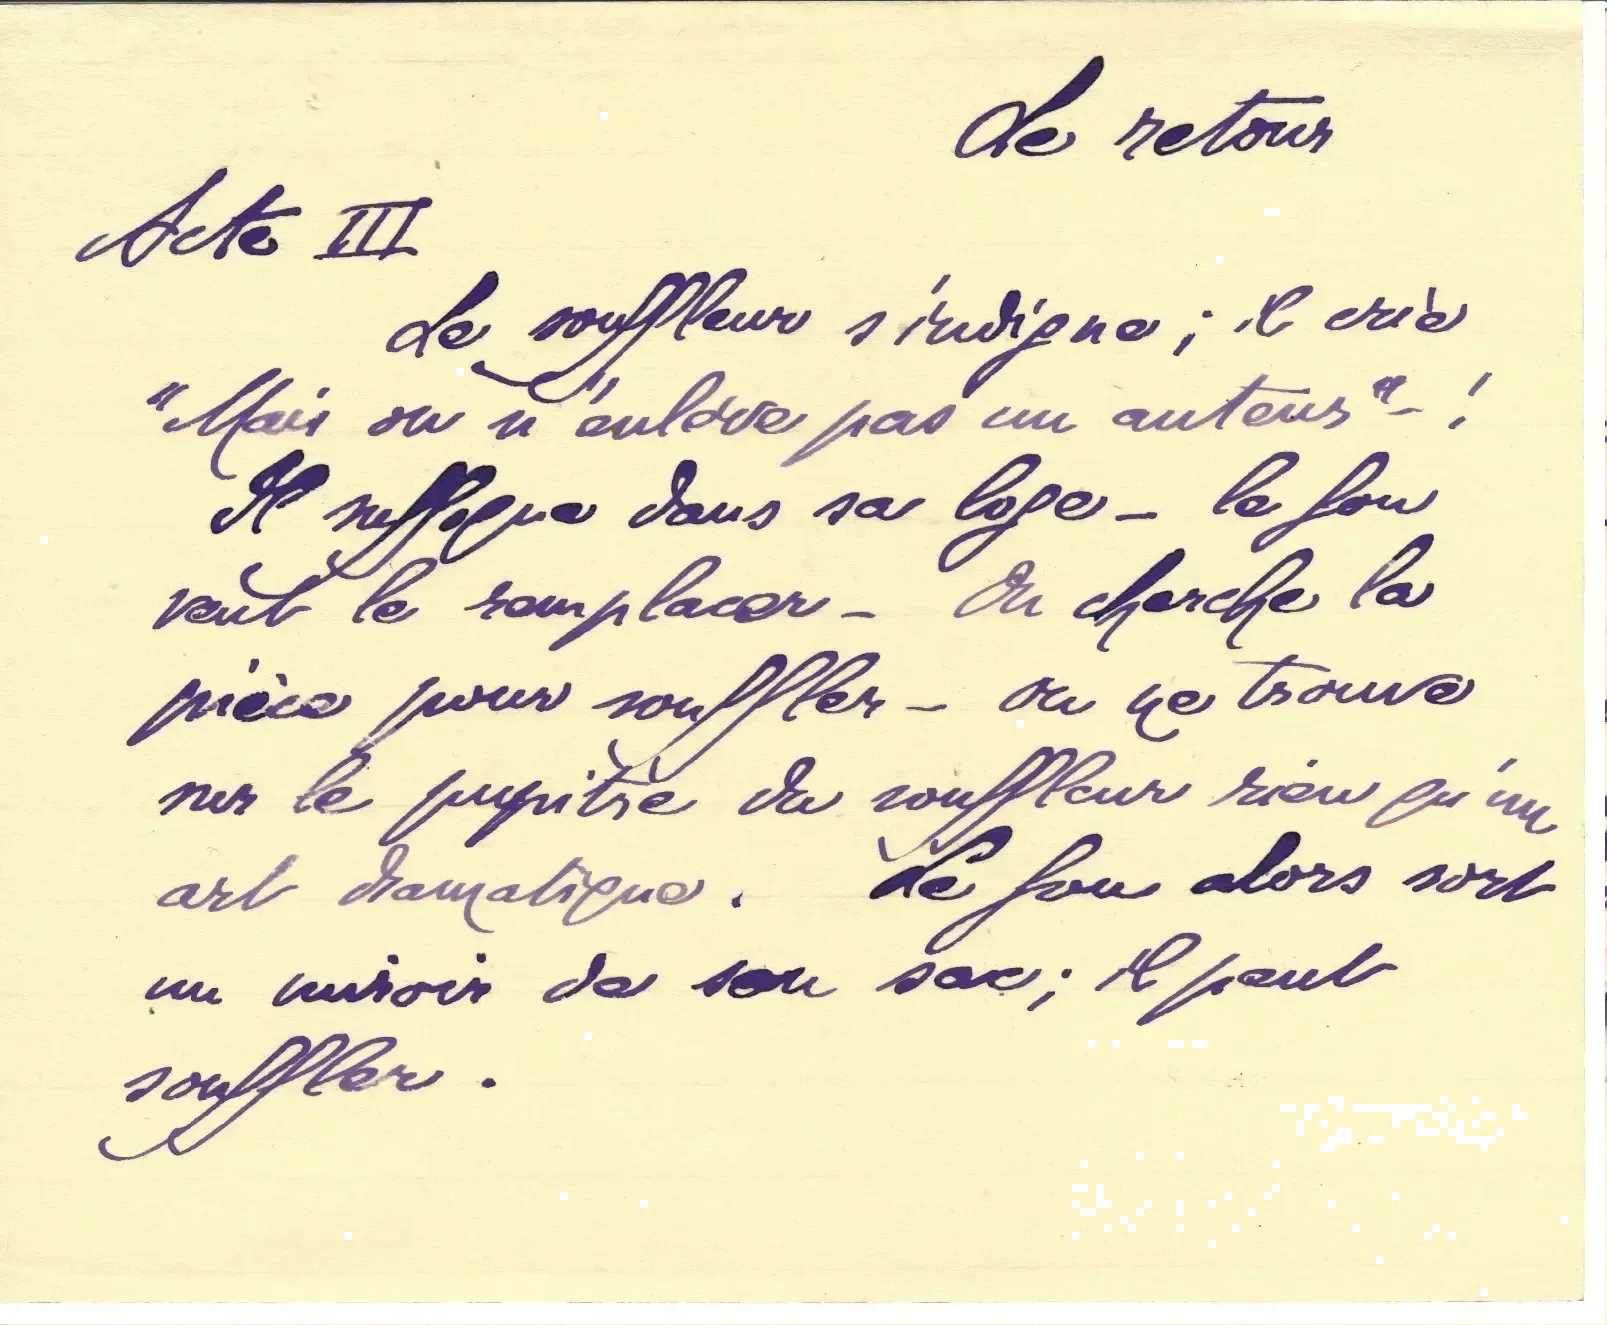 Le retour
Acte III
Le souffleur s'indigne ; il crie
"Mais on n'enlève pas un auteur" - !
Il suffoque dans sa loge - le fou
veut le remplacer - On cherche la
pièce pour souffler - on ne trouve
sur le pupitre du souffleur rien qu'un
art dramatique . Le fou alors sort
un miroir de son sac ; il peut
souffler .